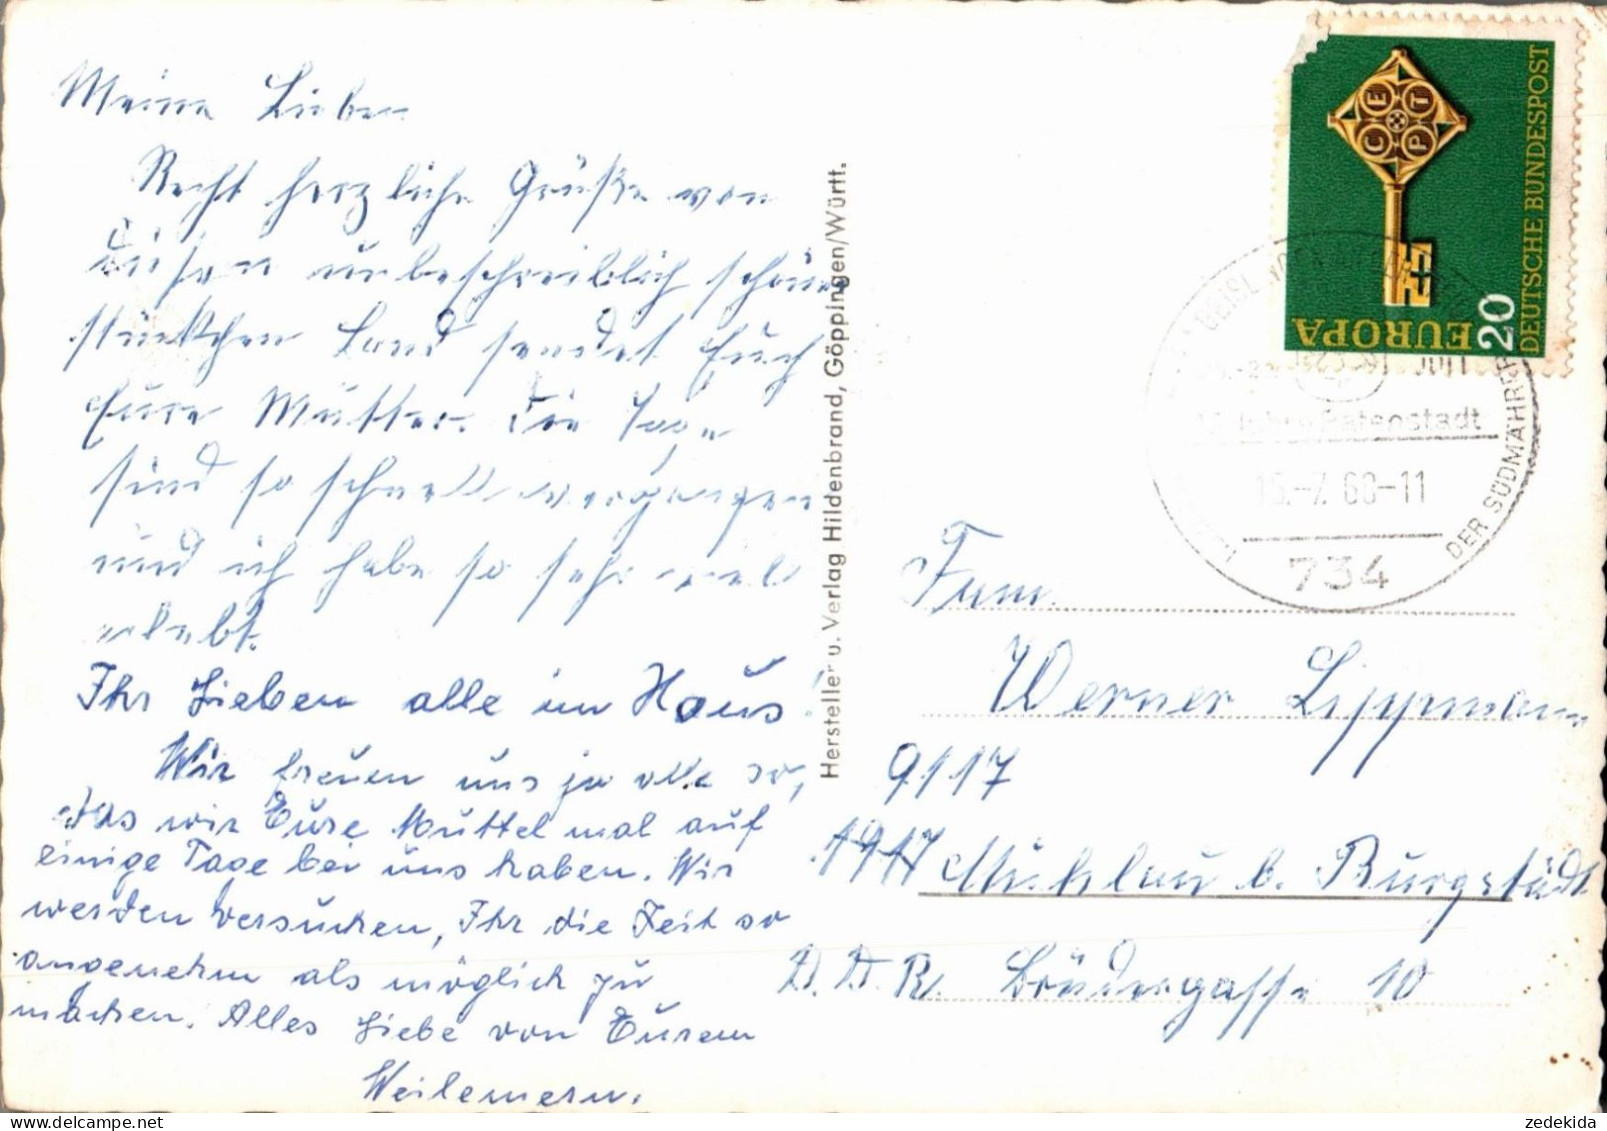 Meine Lieben
Recht herzliche Grüße von
diesem unbeschreiblich schönen
stückchen Land sendet Euch
Eure Mutter. Die Tage
sind so schnell vergangen
und ich habe so sehr viel
erlebt.
Ihr Lieben alle im Haus!
Wir freuen uns ja alle so,
das wir Eure Muttel mal auf
einige Tage bei uns haben. Wir
werden versuchen, Ihr die Zeit so
angenehm als möglich zu
machen. Alles Liebe von Eurem
Hersteller u. Verlag Hildenbrand, Göppingen/Württ.
CEPT
EUROPA
20
DEUTSCHE BUNDESPOST
Jahre Patenstadt
15.-7.68-11
734
DER SÜDMÄHRER
Fam.
Werner Lippmann
9117
1917 Mühlau b. Burgstädt
D.D.R. Brüdergasse 10
zedekida